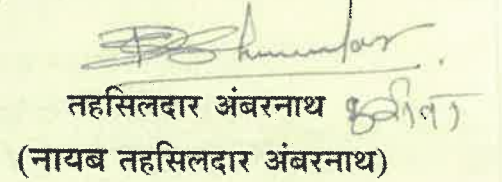 तहसिलदार अंबरनाथ करीता
(नायब तहसिलदार अंबरनाथ)